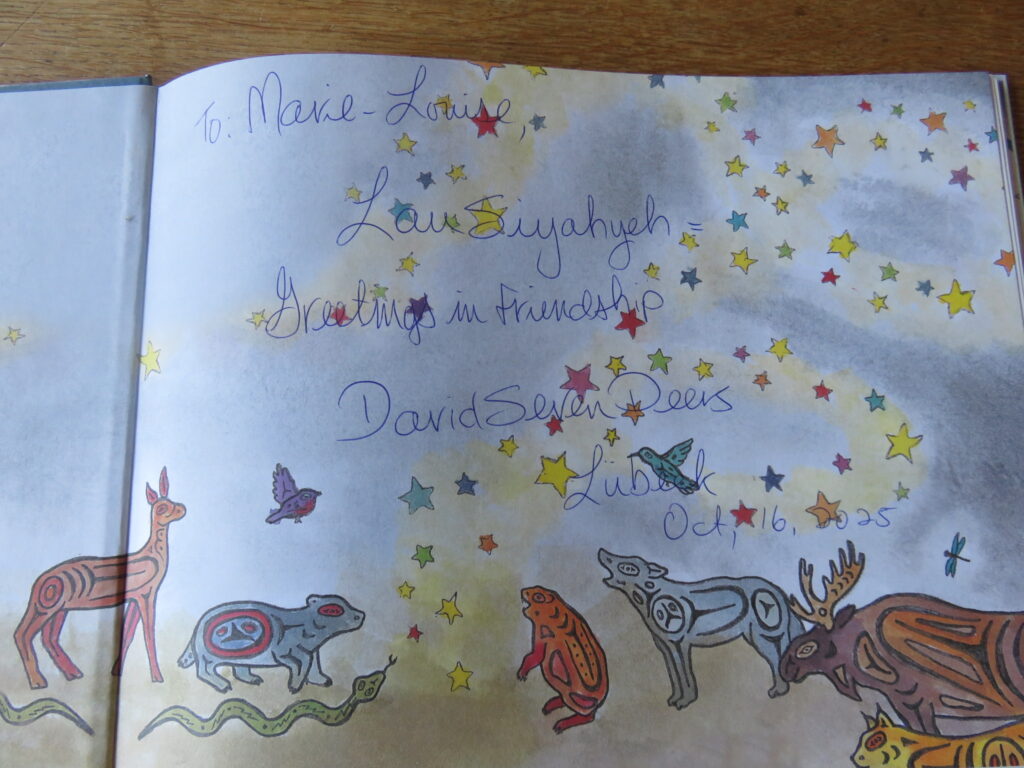 To: Marie-Louise,
Lau Siyahyeh =
Greetings in Friendship
David Seven Deers
Lübeck
Oct, 16, 2025